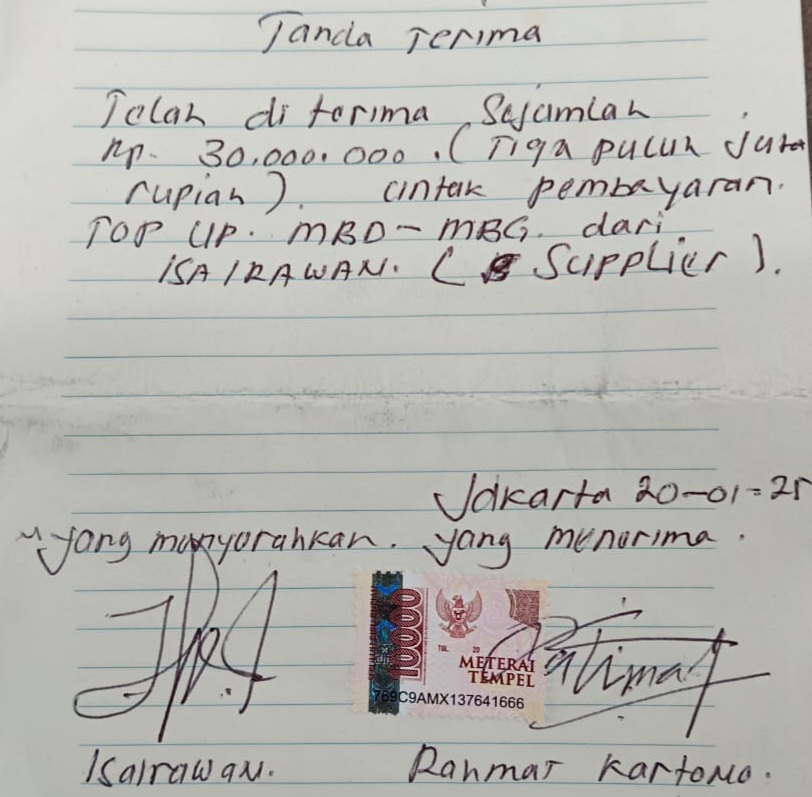 Tanda Terima
Telah di terima Sejumlah
Rp. 30.000.000 . ( Tiga puluh juta
rupiah ). untuk pembayaran.
TOP UP. MBD - MBG. dari
ISAIRAWAN. ( Supplier ).
Jakarta 20-01-25
yang menyerahkan. yang menerima.
10000
TGL. 20
METERAI
TEMPEL
769C9AMX137641666
Isairawan. Rahmat Kartono.